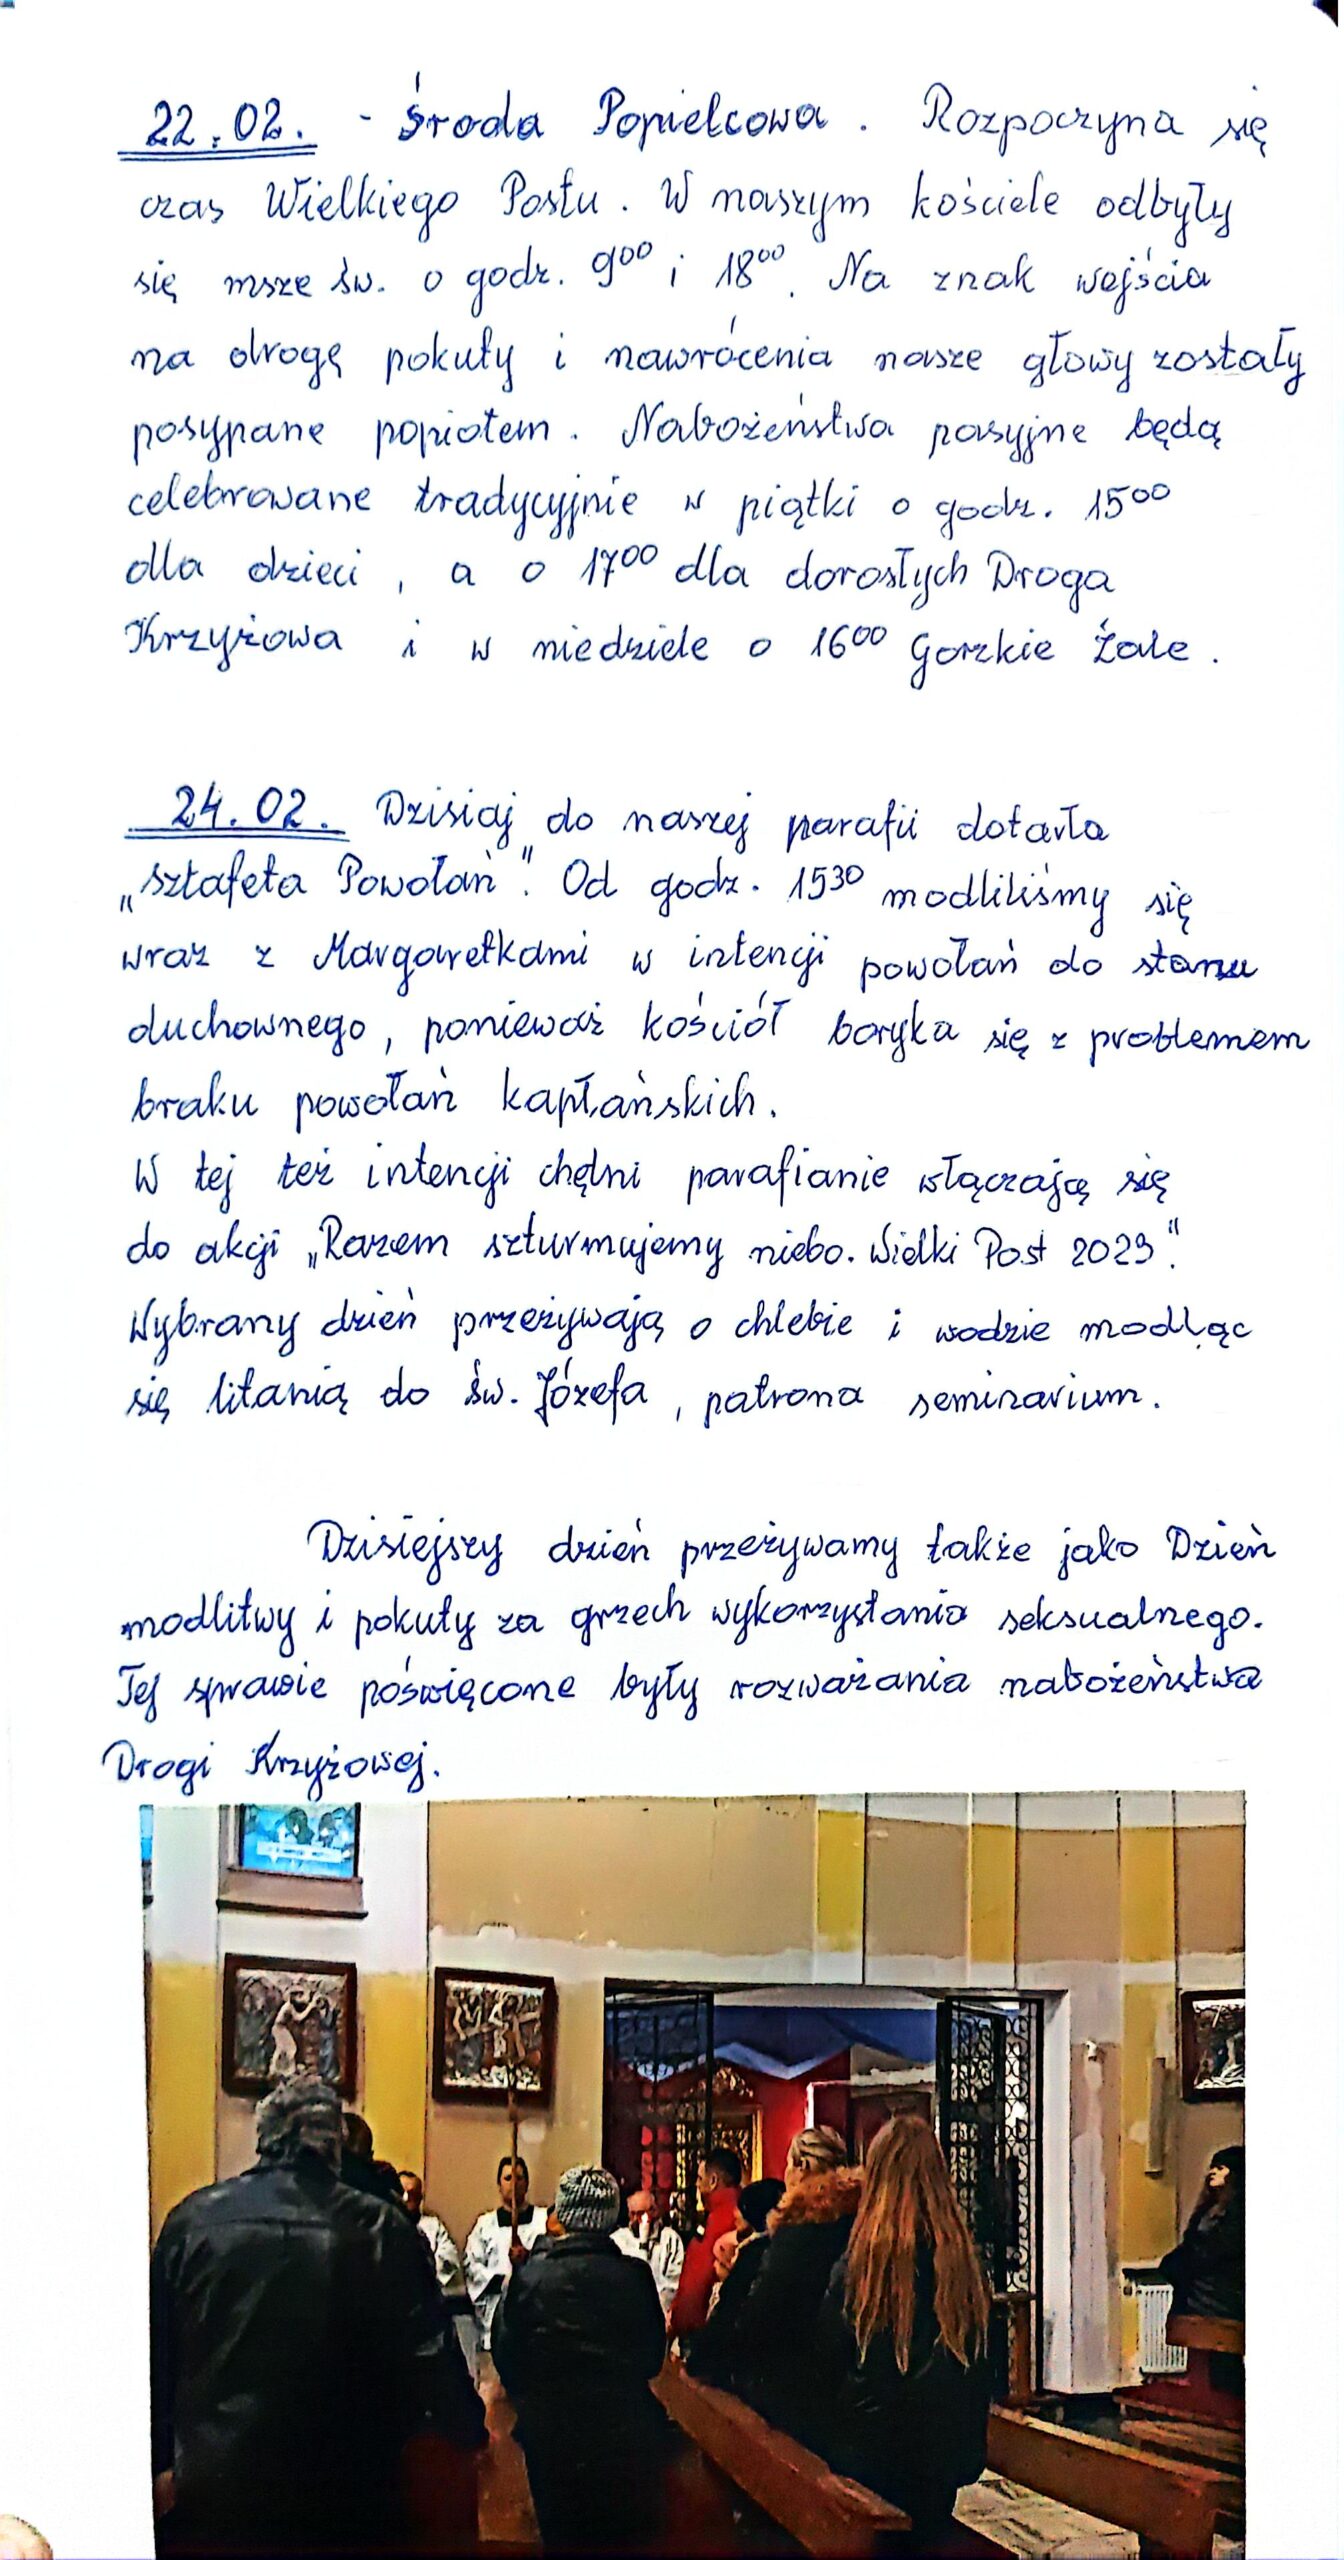 22.02. - Środa Popielcowa. Rozpoczyna się
czas Wielkiego Postu. W naszym kościele odbyły
się msze św. o godz. 9⁰⁰ i 18⁰⁰. Na znak wejścia
na drogę pokuty i nawrócenia nasze głowy zostały
posypane popiołem. Nabożeństwa pasyjne będą
celebrowane tradycyjnie w piątki o godz. 15⁰⁰
dla dzieci, a o 17⁰⁰ dla dorosłych Droga
Krzyżowa i w niedziele o 16⁰⁰ Gorzkie Żale.
24.02. Dzisiaj do naszej parafii dotarła
„sztafeta Powołań". Od godz. 15³⁰ modliliśmy się
wraz z Margaretkami w intencji powołań do stanu
duchownego, ponieważ kościół boryka się z problemem
braku powołań kapłańskich.
W tej też intencji chętni parafianie włączają się
do akcji „Razem szturmujemy niebo. Wielki Post 2023".
Wybrany dzień przeżywają o chlebie i wodzie modląc
się litanią do św. Józefa, patrona seminarium.
Dzisiejszy dzień przeżywamy także jako Dzień
modlitwy i pokuty za grzech wykorzystania seksualnego.
Tej sprawie poświęcone były rozważania nabożeństwa
Drogi Krzyżowej.